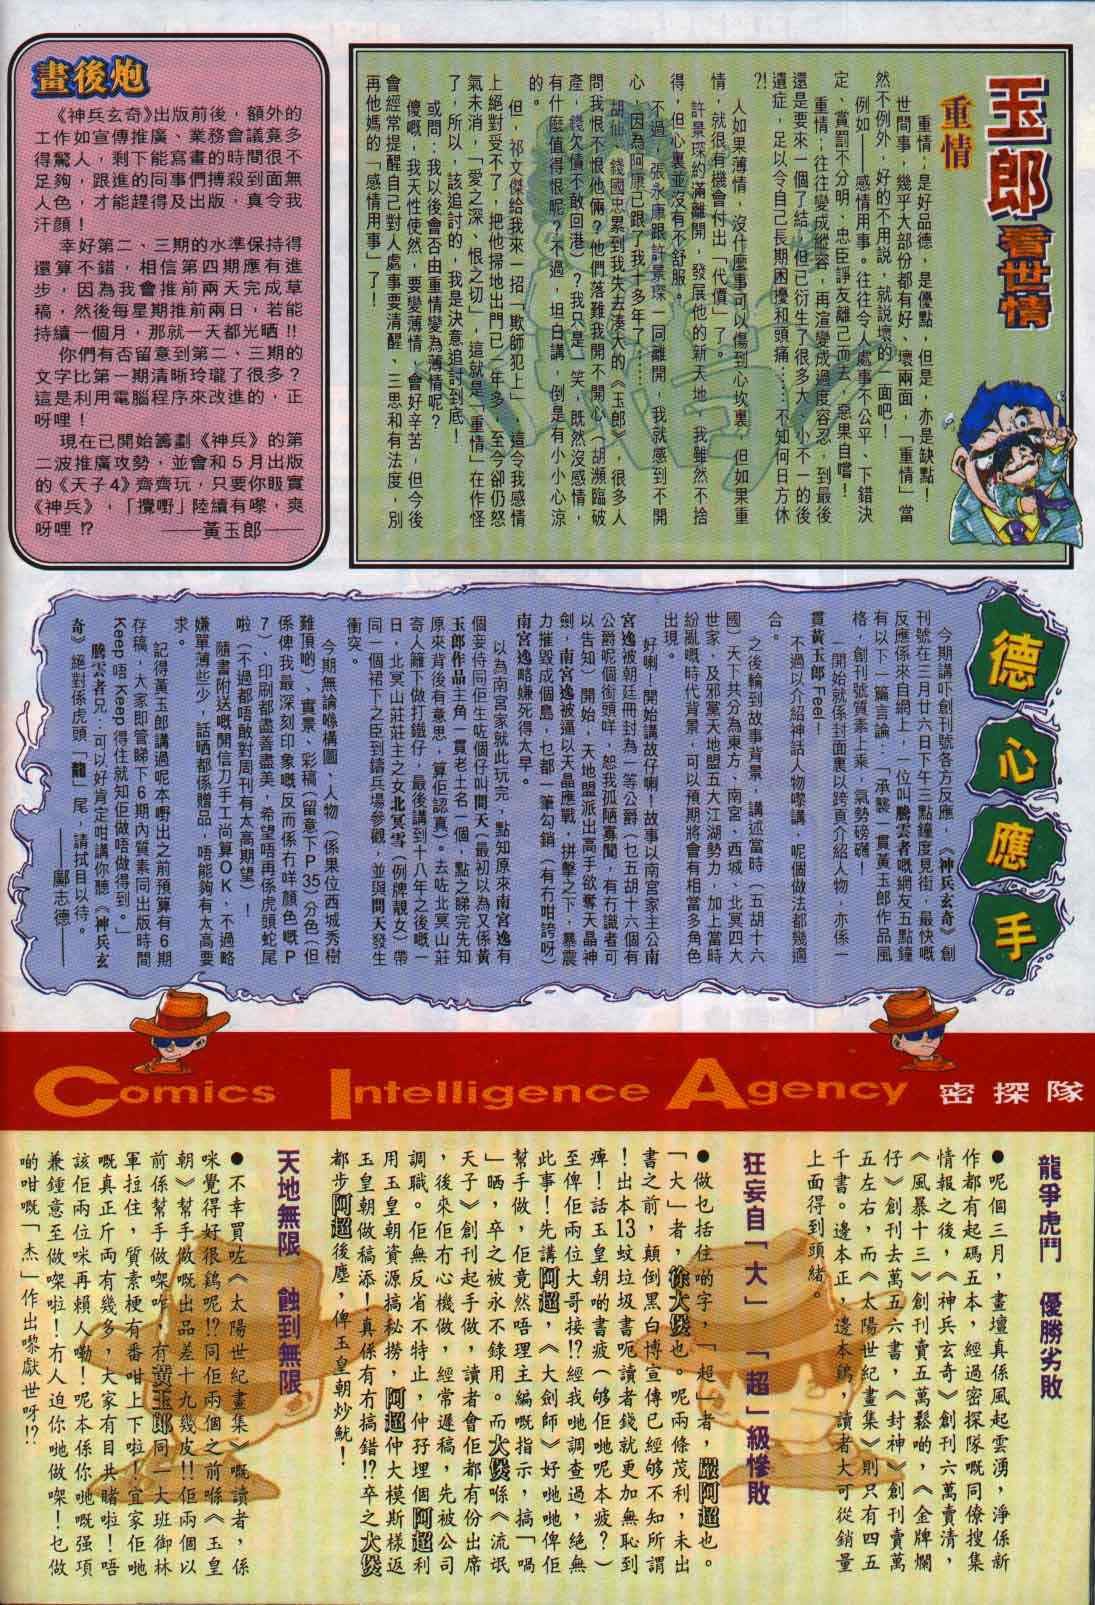 玉郎看世情
重情
重情，是好品德，是優點，但是，亦是缺點！
世間事，幾乎大部份都有好、壞兩面，「重情」當
然不例外，好的不用說，就說壞的一面吧！
例如——感情用事。往往令人處事不公平、下錯決
定、賞罰不分明、忠臣諍友離己而去，惡果自嚐！
重情，往往變成縱容，再渲變成過度容忍，到最後
還是要來一個了結，但已衍生了很多大、小不一的後
遺症，足以令自己長期困擾和頭痛……不知何日方休
?!
人如果薄情，沒什麼事可以傷到心坎裏，但如果重
情，就很有機會付出「代價」了。
許景琛約滿離開，發展他的新天地，我雖然不捨
得，但心裏並沒有不舒服。
不過，張永康跟許景琛一同離開，我就感到不開
心，因為阿康已跟了我十多年了……
胡仙、錢國忠累到我失去湊大的《玉郎》，很多人
問我恨不恨他倆？他們落難我開不開心（胡瀕臨破
產，錢欠債不敢回港）？我只是一笑，既然沒感情，
有什麼值得恨呢？不過，坦白講，倒是有小小心涼
的。
但，祁文傑給我來一招「欺師犯上」，這令我感情
上絕對受不了，把他掃地出門已一年多，至今卻仍怒
氣未消，「愛之深、恨之切」，這就是「重情」在作怪
了，所以，該追討的，我是決意追討到底！
或問：我以後會否由重情變為薄情呢？
傻嘅，我天性使然，要變薄情，會好辛苦，但今後
會經常提醒自己對人處事要清醒、三思和有法度，別
再他媽的「感情用事」了！
畫後炮
《神兵玄奇》出版前後，額外的
工作如宣傳推廣、業務會議竟多
得驚人，剩下能寫畫的時間很不
足夠，跟進的同事們搏殺到面無
人色，才能趕得及出版，真令我
汗顏！
幸好第二、三期的水準保持得
還算不錯，相信第四期應有進
步，因為我會推前兩天完成草
稿，然後每星期推前兩日，若能
持續一個月，那就一天都光晒!!
你們有否留意到第二、三期的
文字比第一期清晰玲瓏了很多？
這是利用電腦程序來改進的，正
呀哩！
現在已開始籌劃《神兵》的第
二波推廣攻勢，並會和5月出版
的《天子4》齊齊玩，只要你眼實
《神兵》，「攪嘢」陸續有嚟，爽
呀哩!? ——黃玉郎——
德心應手
今期講吓創刊號各方反應，《神兵玄奇》創
刊號在三月廿六日下午三點鐘度見街，最快嘅
反應係來自網上，一位叫騰雲者嘅網友五點鐘
有以下一篇言論：「承襲一貫黃玉郎作品風
格，創刊號質素上乘，氣勢磅礴！
一開始就係封面裏以跨頁介紹人物，亦係一
貫黃玉郎Feel！
不過以介紹神話人物嚟講，呢個做法都幾適
合。
之後輪到故事背景，講述當時（五胡十六
國）天下共分為東方、南宮、西城、北冥四大
世家，及邪黨天地盟五大江湖勢力，加上當時
紛亂嘅時代背景，可以預期將會有相當多角色
出現。
好喇！開始講故仔喇！故事以南宮家主公南
宮逸被朝廷冊封為一等公爵（乜五胡十六個有
公爵呢個銜頭咩，恕我孤陋寡聞，有冇識者可
以告知）開始，天地盟派出高手欲奪天晶神
劍，南宮逸被逼以天晶應戰，拼擊之下，暴震
力摧毀成個島，乜都一筆勾銷（有冇咁誇呀）
南宮逸略嫌死得太早。
以為南宮家就此玩完，點知原來南宮逸有
個妾侍同佢生咗個仔叫問天（最初以為又係黃
玉郎作品主角一貫老土名一個，點之睇完先知
原來背後有意思，算佢認真）。去咗北冥山莊
寄人籬下做打鐵仔，最後講到十八年之後嘅一
日，北冥山莊莊主之女北冥雪（例牌靚女）帶
同一個裙下之臣到鑄兵場參觀，並與問天發生
衝突。
今期無論喺構圖、人物（係果位西城秀樹
難頂啲）、實景、彩稿（留意下P35）（分色（但
係俾我最深刻印象嘅反而係冇咩顏色嘅P
7）、印刷都盡善盡美，希望唔再係虎頭蛇尾
啦（不過都唔敢對周刊有太高期望）！
隨書附送嘅開信刀手工尚算OK，不過略
嫌單薄些少，話晒都係贈品，唔能夠有太高要
求。
記得黃玉郎講過呢本嘢出之前預算有6期
存稿，大家即管睇下6期內質素同出版時間
Keep唔Keep得住就知佢做唔做得到。」
騰雲者兄：可以好肯定咁講你聽《神兵玄
奇》絕對係虎頭「龍」尾，請拭目以待。
——鄺志德——
Comics Intelligence Agency 密探隊
龍爭虎鬥 優勝劣敗
●呢個三月，畫壇真係風起雲湧，淨係新
作都有起碼五本，經過密探隊嘅同僚搜集
情報之後，《神兵玄奇》創刊六萬賣清，
《風暴十三》創刊賣五萬鬆啲，《金牌爛
仔》創刊去萬五六書，《封神》創刊賣萬
五左右，而《太陽世紀畫集》則只有四五
千書。邊本正，邊本鷄，讀者大可從銷量
上面得到頭緒。
狂妄自「大」 「超」級慘敗
●做乜括住啲字，「超」者，嚴阿超也。
「大」者，徐大煲也。呢兩條茂利，未出
書之前，顛倒黑白博宣傳已經够不知所謂
！出本13蚊垃圾書呃讀者錢就更加無恥到
痺！話玉皇朝啲書疲（够佢哋呢本疲？）
至俾佢兩位大哥接!?經我哋調查過，絕無
此事！先講阿超，《大劍師》好哋哋俾佢
幫手做，佢竟然唔理主編嘅指示，搞「喎
」晒，卒之被永不錄用。而大煲喺《流氓
天子》創刊起手做，讀者會佢都有份出席
，後來佢有心機做，經常遲稿，先被公司
調職。佢無反省不特止，仲孖埋個阿超利
用玉皇朝資源搞秘撈，阿超仲大模斯樣返
玉皇朝做稿添！真係有冇搞錯!?卒之大煲
都步阿超後塵，俾玉皇朝炒魷！
天地無限 蝕到無限
●不幸買咗《太陽世紀畫集》嘅讀者，係
咪覺得好很鷄呢!?同佢兩個之前喺《玉皇
朝》幫手做嘅出品差十九幾皮!!佢兩個以
前係幫手做㗎咋，有黃玉郎同一大班御林
軍拉住，質素梗有番咁上下啦！宜家佢哋
嘅真正斤両有幾多，大家有目共睹啦！唔
該佢兩位咪再賴人嘞！呢本係你哋嘅强項
兼鍾意至做㗎啦！冇人迫你哋做㗎！乜做
啲咁嘅「杰」作出嚟獻世呀!?